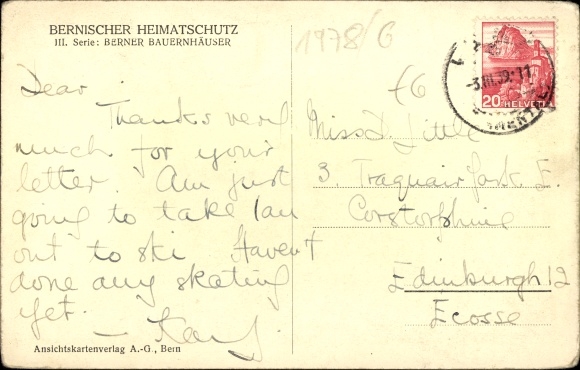 BERNISCHER HEIMATSCHUTZ
III. Serie: BERNER BAUERNHÄUSER
1978/6
-3.III.39.-11
20 HELVETIA
Dear .
Thanks very
much for your
letter. Am just
going to take Ian
out to ski Haven't
done any skating
yet.
Ansichtskartenverlag A.-G., Bern
Miss D. Little
3. Traquair Park. E.
Corstorphine
Edinburgh 12
Ecosse